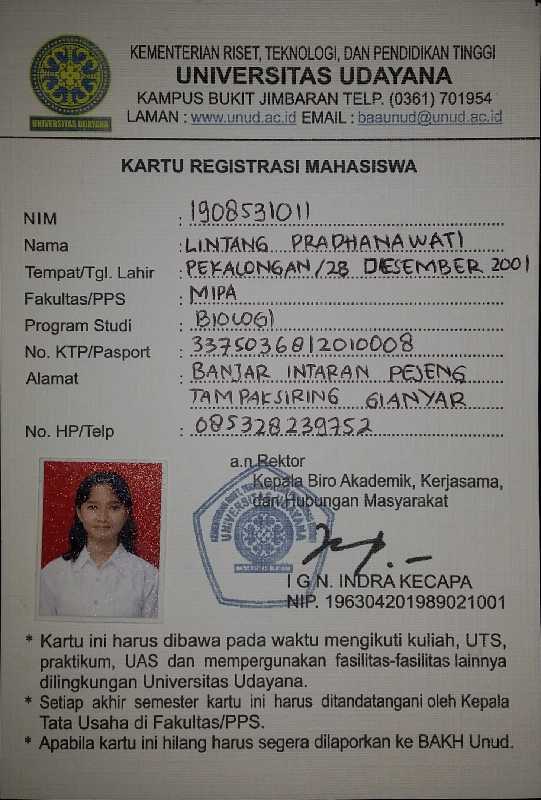 KEMENTERIAN RISET, TEKNOLOGI, DAN PENDIDIKAN TINGGI
UNIVERSITAS UDAYANA
KAMPUS BUKIT JIMBARAN TELP. (0361) 701954
LAMAN : www.unud.ac.id EMAIL : baaunud@unud.ac.id
UNIVERSITAS UDAYANA
KARTU REGISTRASI MAHASISWA
NIM : 1908531011
Nama : LINTANG PRADHANAWATI
Tempat/Tgl. Lahir : PEKALONGAN/28 DESEMBER 2001
Fakultas/PPS : MIPA
Program Studi : BIOLOGI
No. KTP/Pasport : 3375036812010008
Alamat : BANJAR INTARAN PEJENG
TAMPAKSIRING GIANYAR
No. HP/Telp : 085328239752
a.n Rektor
Kepala Biro Akademik, Kerjasama,
dan Hubungan Masyarakat
UNIVERSITAS UDAYANA
I G N. INDRA KECAPA
NIP. 196304201989021001
* Kartu ini harus dibawa pada waktu mengikuti kuliah, UTS,
praktikum, UAS dan mempergunakan fasilitas-fasilitas lainnya
dilingkungan Universitas Udayana.
* Setiap akhir semester kartu ini harus ditandatangani oleh Kepala
Tata Usaha di Fakultas/PPS.
* Apabila kartu ini hilang harus segera dilaporkan ke BAKH Unud.